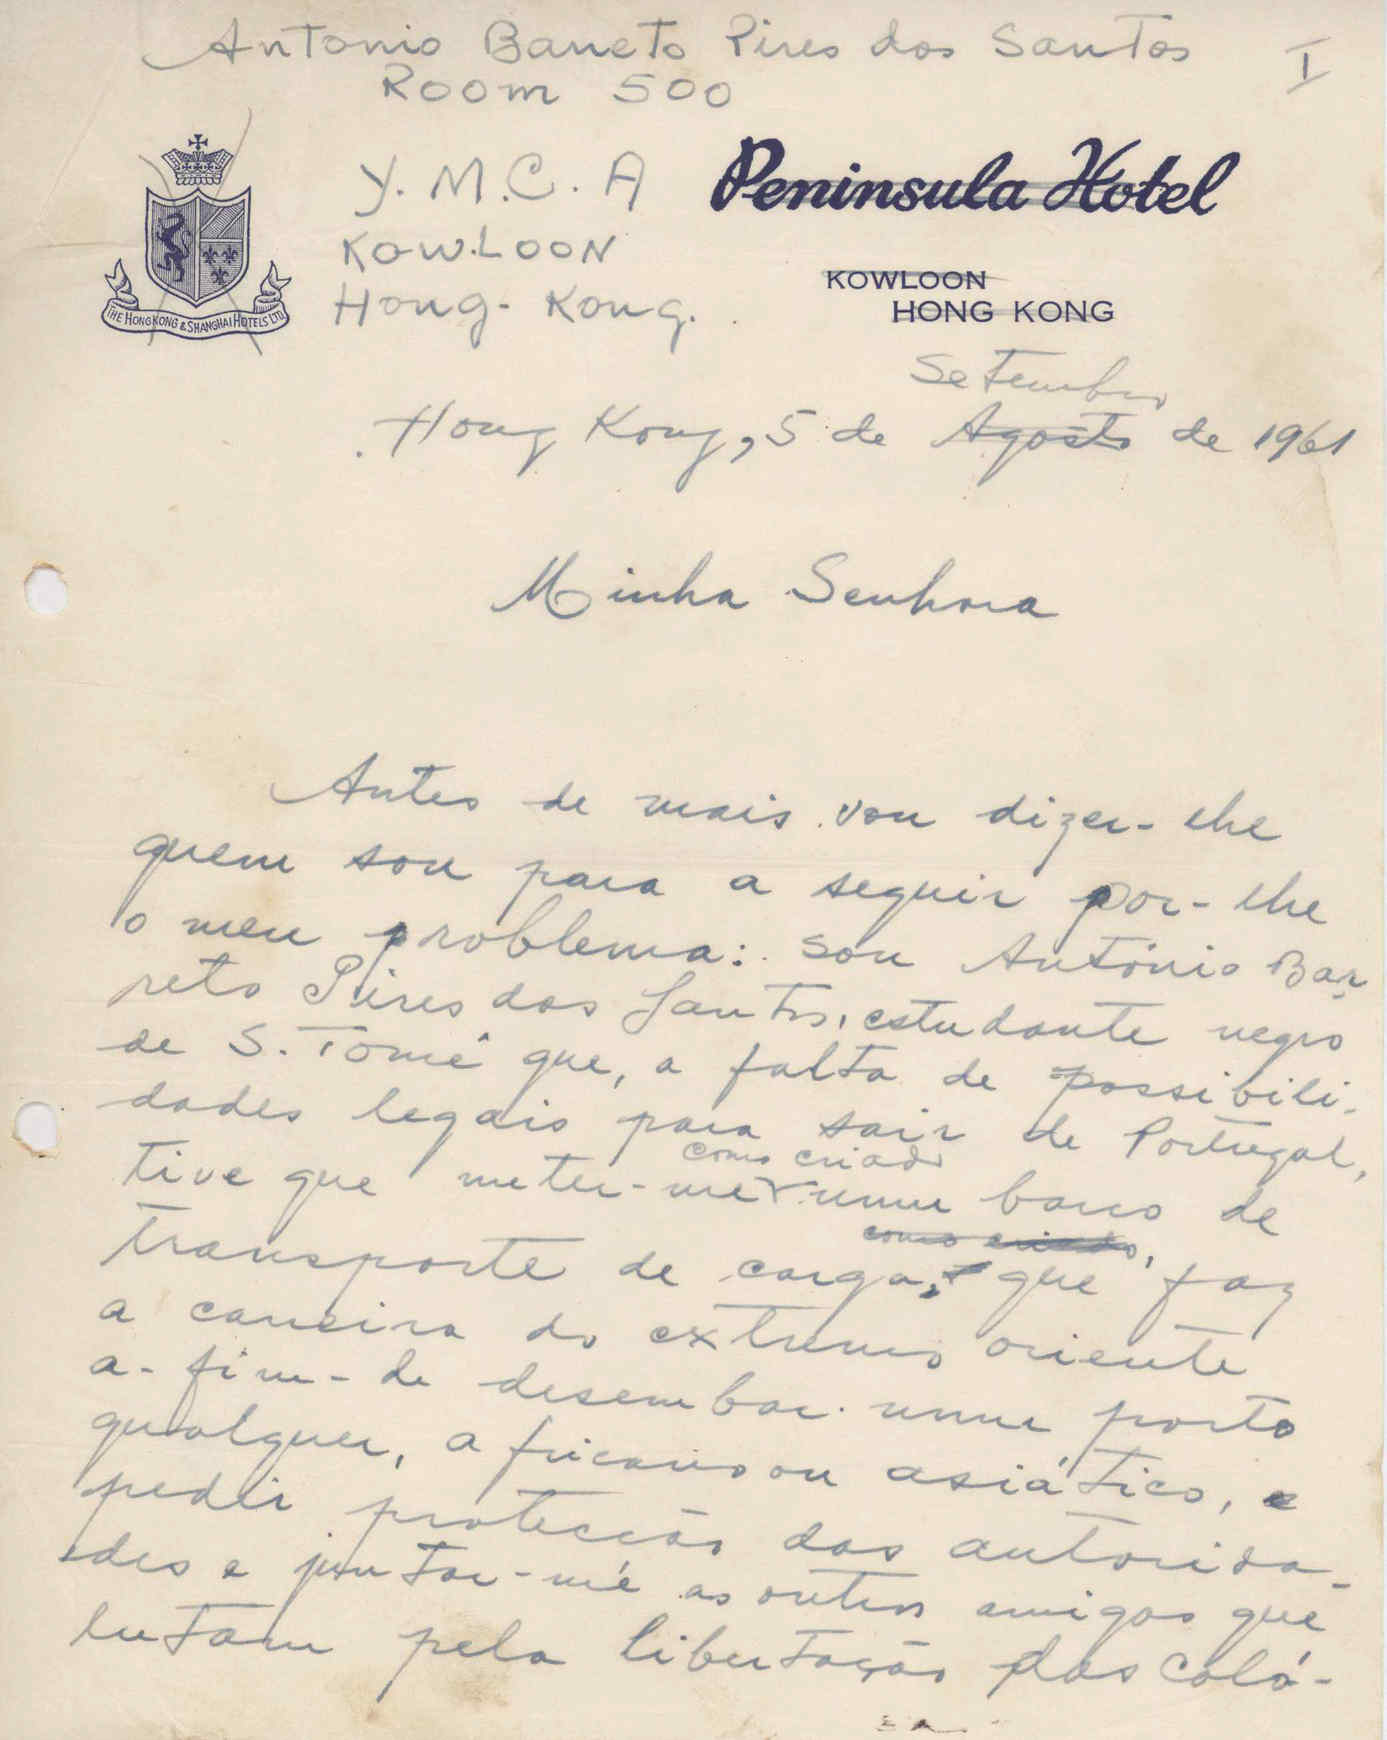 Antonio Barreto Pires dos Santos I
Room 500
Y.M.C.A
Peninsula Hotel
KOWLOON
Hong-Kong.
KOWLOON
HONG KONG
THE HONGKONG & SHANGHAI HOTELS LTD
Setembro
Hong Kong, 5 de Agosto de 1961
Minha Senhora
Antes de mais vou dizer-lhe
quem sou para a seguir por-lhe
o meu problema: sou António Bar-
reto Pires dos Santos, estudante negro
de S. Tomé que, a falta de possibili-
dades legais para sair de Portugal,
como criado
tive que meter-me num barco de
como criado,
transporte de carga, que faz
a carreira do extremo oriente
a-fim-de desembar. num porto
qualquer, africano ou asiático, e
pedir protecção das autorida-
des e juntar-me aos outros amigos que
lutam pela libertação das coló-